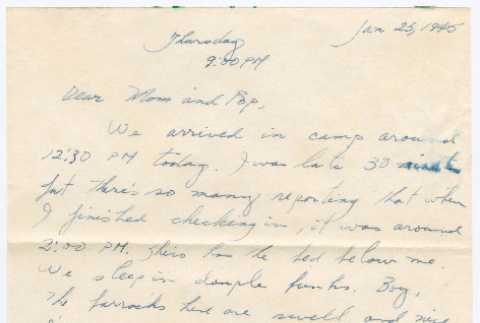 Jan 25, 1945
Thursday
9:00 PM
Dear Mom and Pop,
We arrived in camp around
12:30 PM today. I was late 30
but there's so many reporting that when
I finished checking in, it was around
PM. has the bed below me.
We sleep in double bunks. Boy,
the barracks here are swell and nice